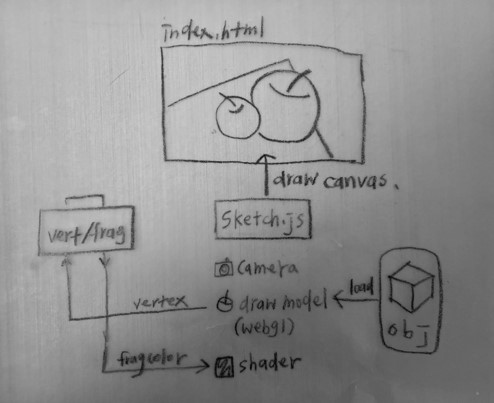 index.html
draw canvas.
Sketch.js
vert/frag
camera
vertex
draw model
(webgl)
load
obj
fragcolor
shader